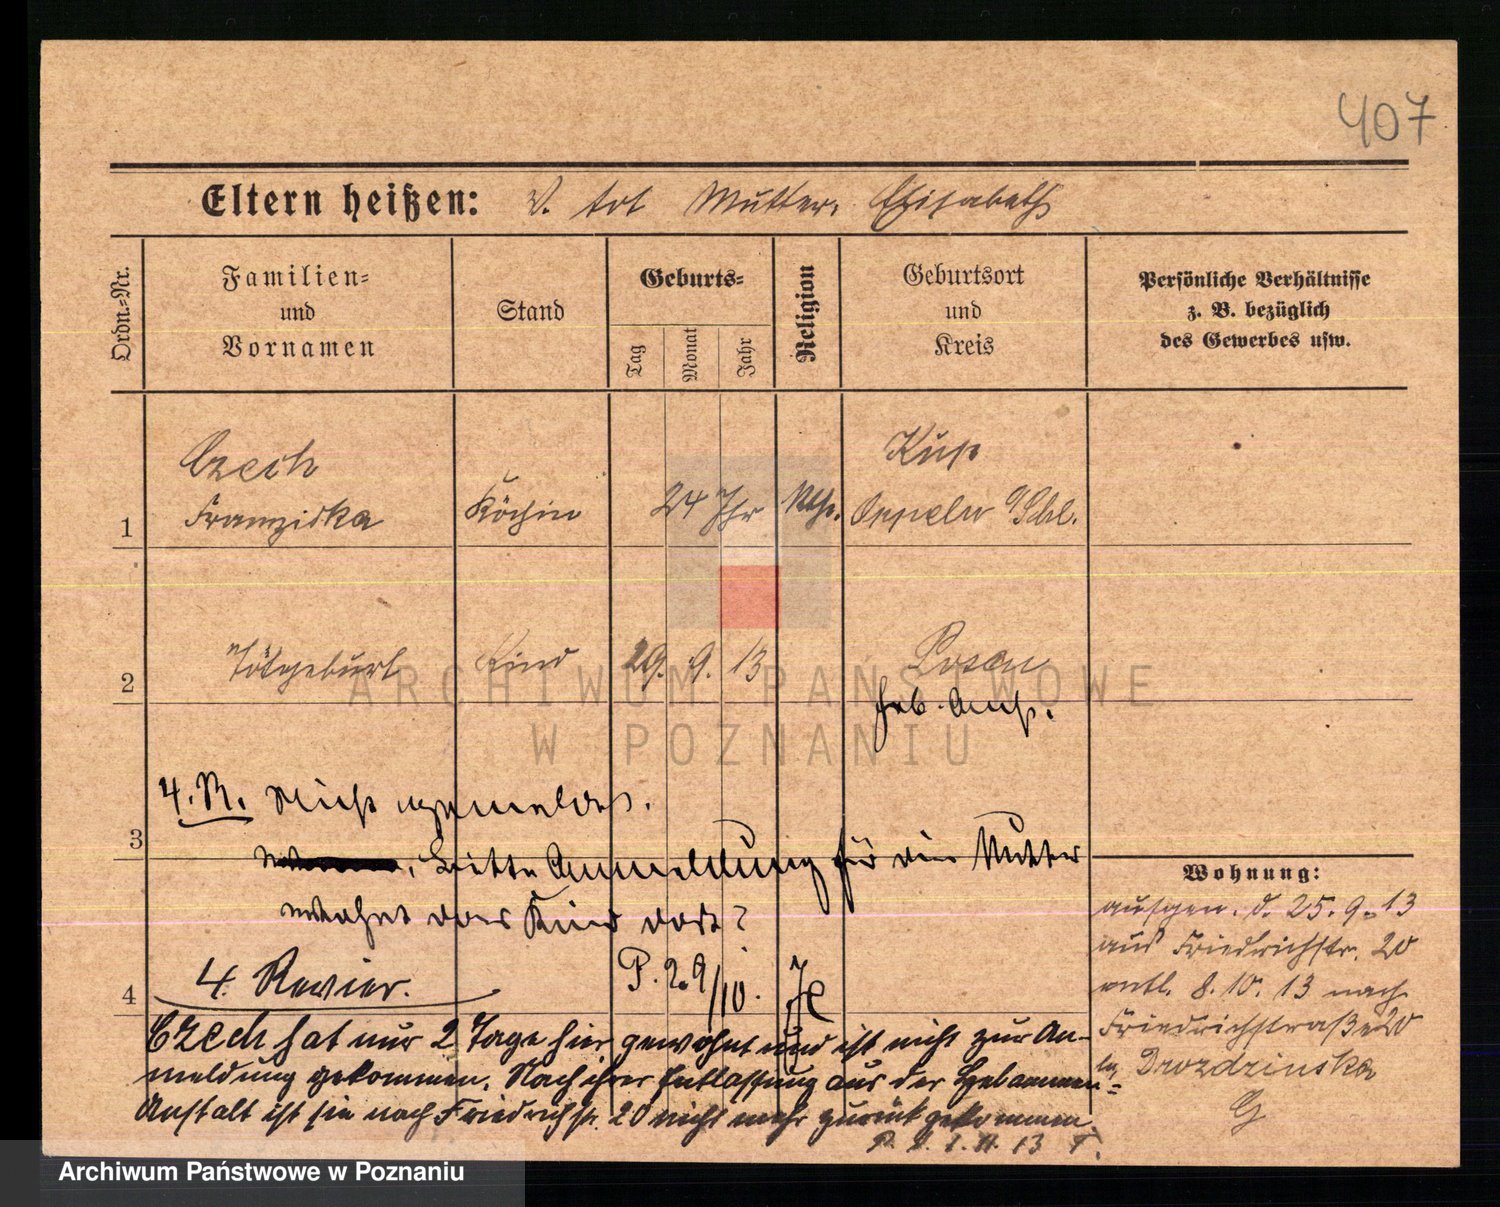 407
Eltern heißen: V. tot Mutter: Elisabeth
Ordn.=Nr.
Familien=
und
Vornamen
Stand
Geburts=
Tag
Monat
Jahr
Religion
Geburtsort
und
Kreis
Persönliche Verhältnisse
z. B. bezüglich
des Gewerbes usw.
Czech
Franziska
Köchin
24 Jhr
Kth.
Kup
Oppeln O/Schl.
1
Totgeburt
Kind
29. 9. 13
Posen
Heb. Anst.
2
4. R. Nicht gemeldet.
3
Bitte Anmeldung für die Mutter
wohnt das Kind dort?
4. Revier.
P. 29/10.
4
Czech hat nur 2 Tage hier gewohnt und ist nicht zur An-
meldung gekommen. Nach ihrer Entlassung aus der Hebammen-
Anstalt ist sie nach Friedrichstr. 20 nicht mehr zurück gekommen.
P. 1. 11. 13 T.
Wohnung:
aufgen. d. 25. 9. 13
aus Friedrichstr. 20
entl. 8. 10. 13 nach
Friedrichstraße 20
Drozdzinska
ARCHIWUM PAŃSTWOWE
W POZNANIU
Archiwum Państwowe w Poznaniu